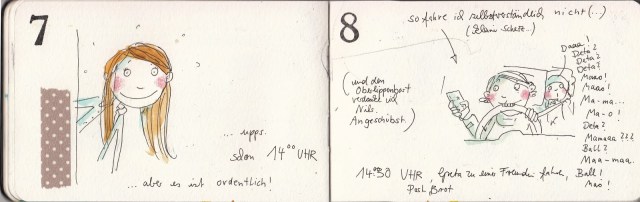 7
... upps.
schon 14⁰⁰ UHR
... aber es ist ordentlich!
8
so fahre ich selbstverständlich nicht (...)
(und den
Oberlippenbart
verdanke ich
Nils.
Angeschubst.)
Daaa!
Deta?
Deta?
Deta?
Maao!
Maao!
Ma-ma...
Ma-o!
Deta?
Mamaaa???
Ball?
Maa-maa.
Ball!
Mao!
14:30 UHR, Greta zu einer Freundin fahren,